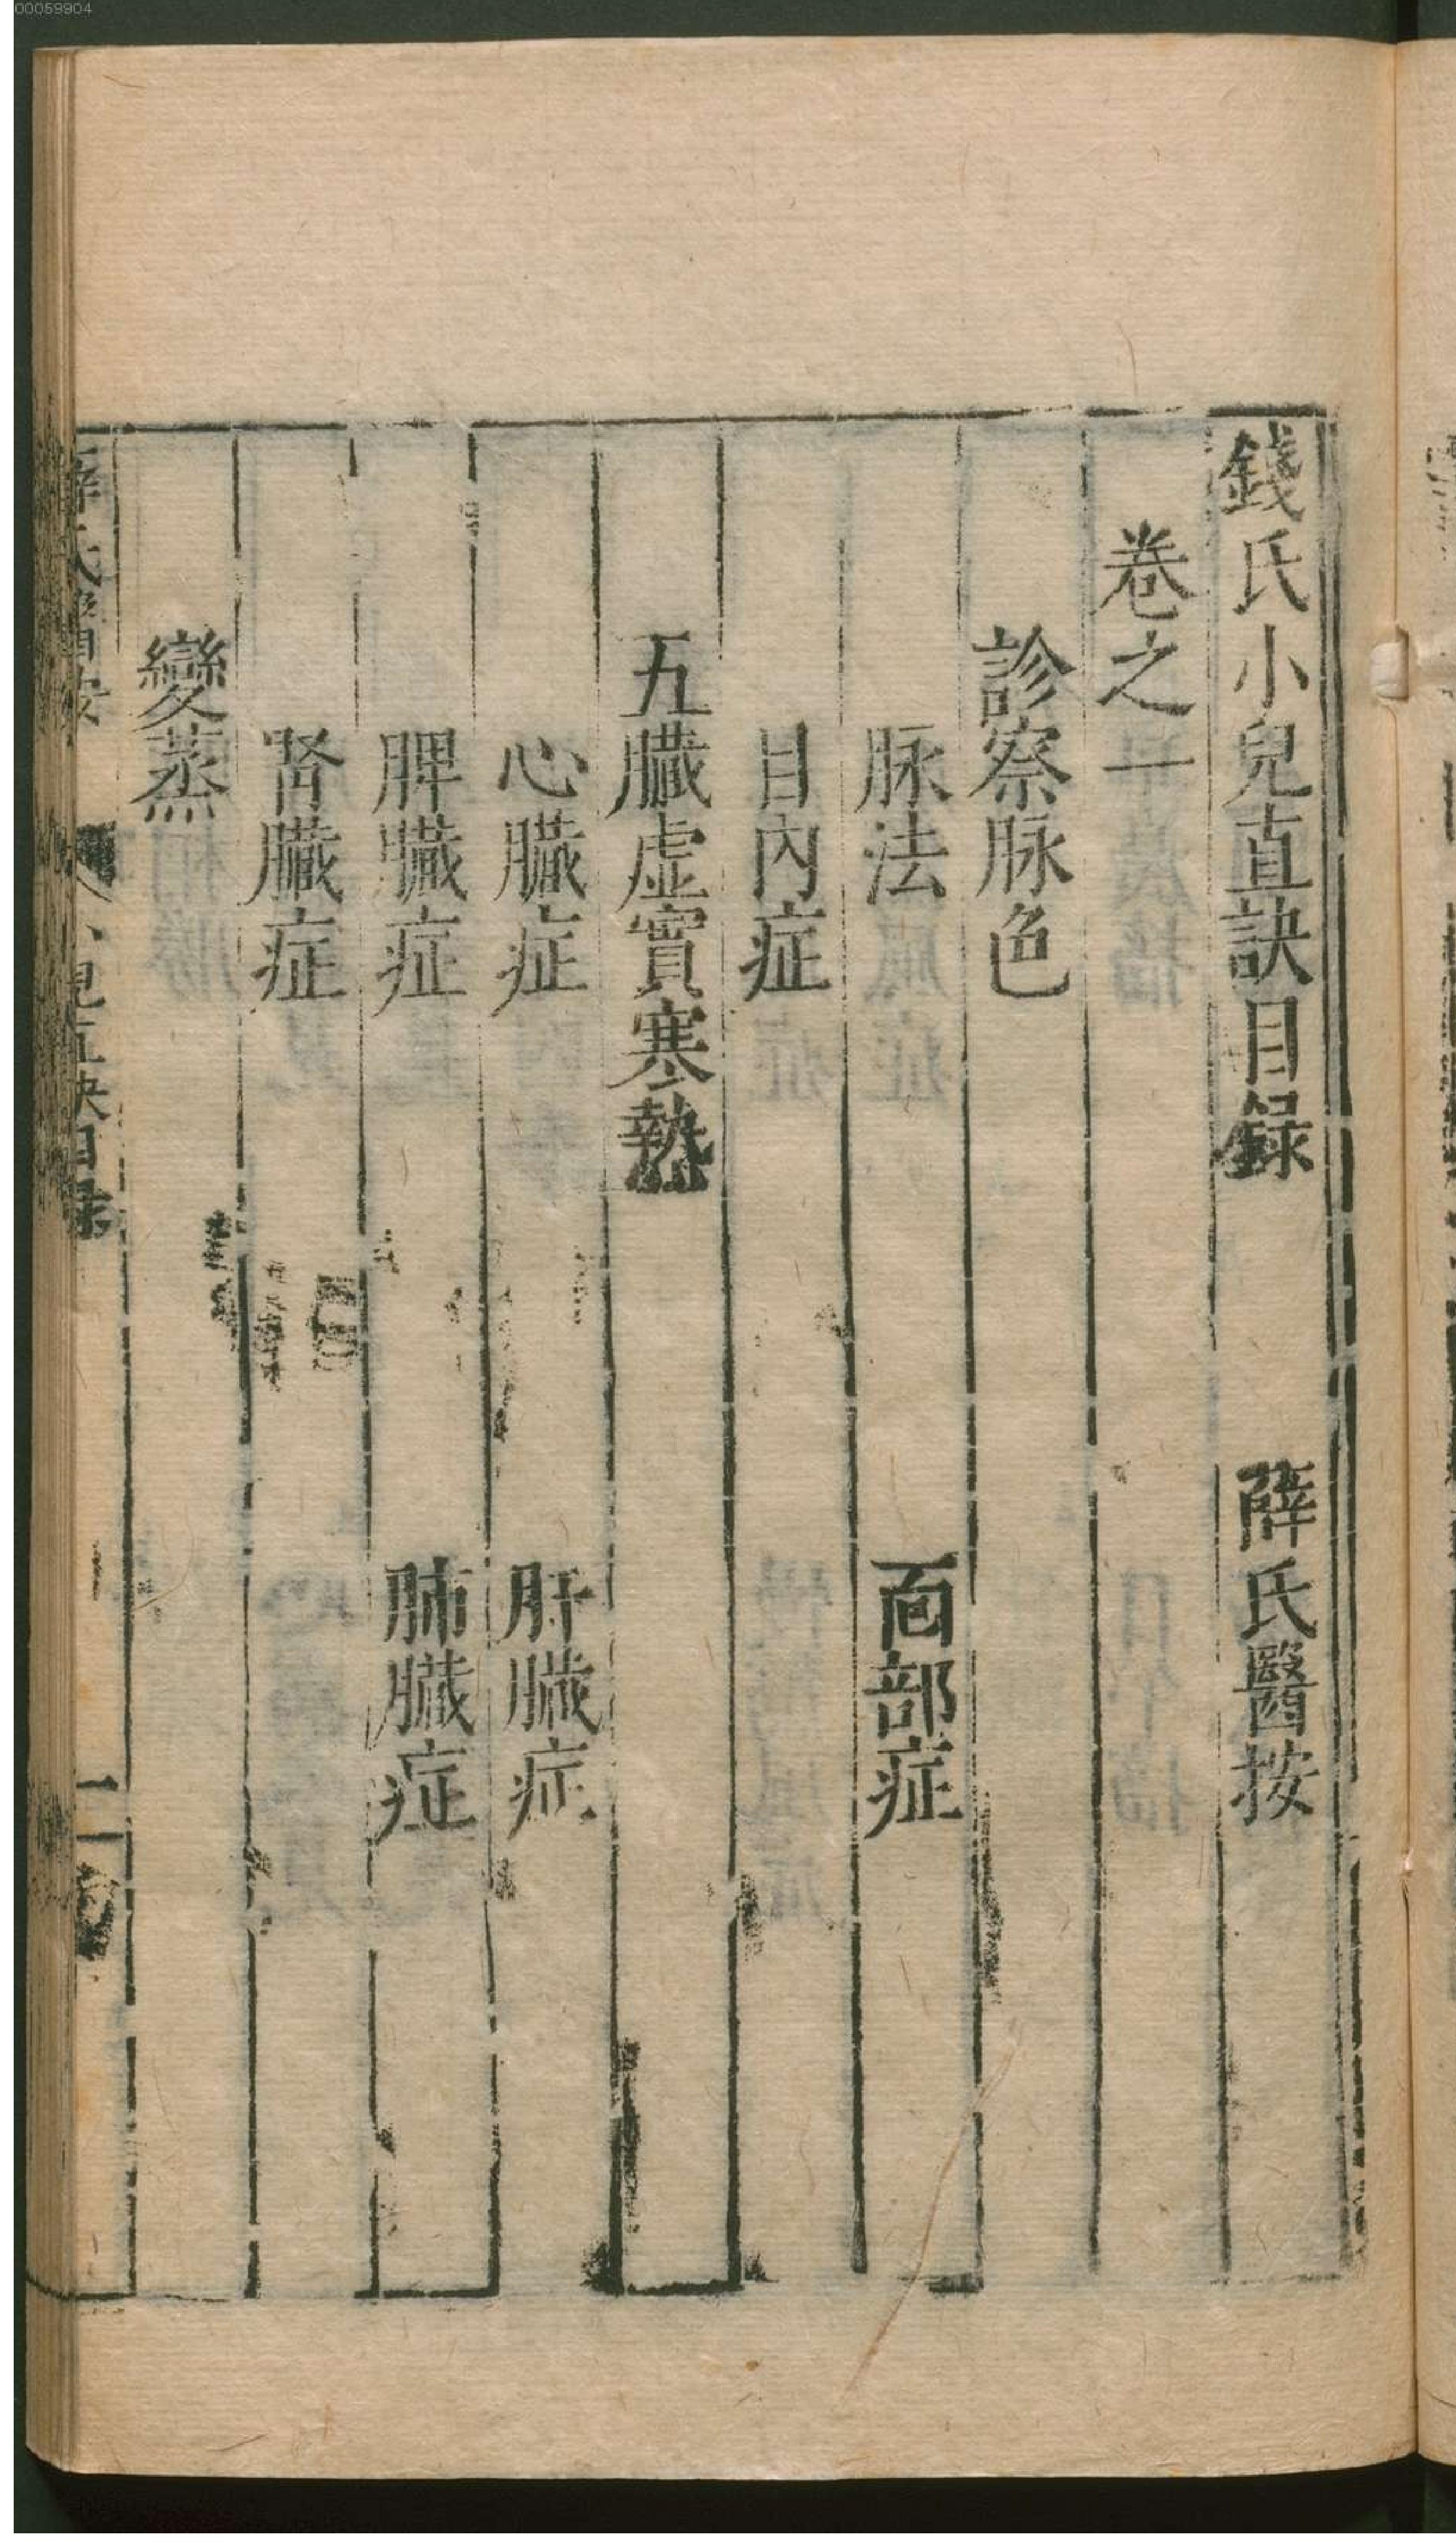 00059904
錢氏小兒直訣目録 薛氏醫按
卷之一
診察脉色
脉法 面部症
目內症
五臟虛實寒熱
心臟症 肝臟症
脾臟症 肺臟症
肾臟症
變蒸
小兒直訣目録 二